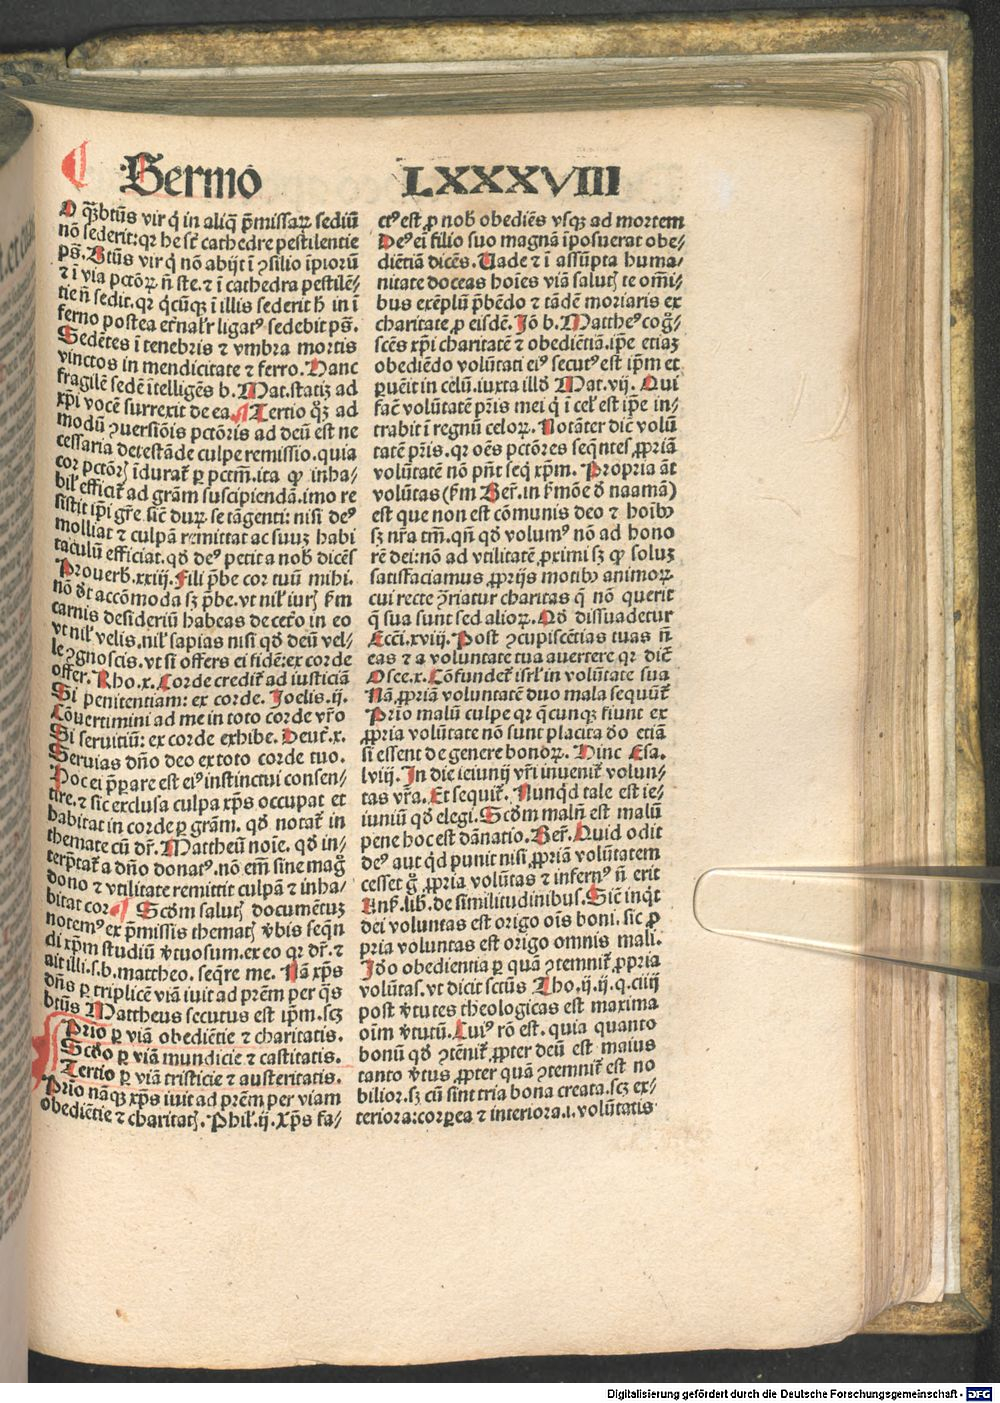 Sermo
LXXXVIII
O qꝫ btūs vir q̇ in aliq̄ p̄missaꝝ sediū
nō sederit: qꝛ he st̄ cathedre pestilentie
pš. Btūs vir q̇ nō abijt ī ꝯsilio īpioꝝ
⁊ ī via pctōꝝ ñ ste. ⁊ ī cathedra pestilē⸗
tie ñ sedit. qꝛ q̇cūqꝫ ī illis sederit h̄ in ī
ferno postea et̄nalr̄ ligatꝰ sedebit pš.
Sedētes ī tenebris ⁊ vmbra mortis
vinctos in mendicitate ⁊ ferro. Hanc
fragilē sedē ītelligēs b. Mat. statiꝫ ad
xp̄i vocē surrexit de ea. ¶ Tertio qꝫ ad
modū ꝯuersiōis pctōris ad deū est ne
cessaria detestāde culpe remissio. quia
cor pctōrꝭ īdurat̄ ꝑ pctm̄. ita ꝙ inha⸗
bil̓ efficit̄ ad grām suscipiendā. imo re
sistit ip̄i gr̄e sic̄ duꝝ se tāgenti: nisi deꝰ
molliat ⁊ culpā remittat ac suuꝫ habi
taculū efficiat. qđ deꝰ petit a nob̄ dicēs
Prouerb̄. xxiij. Fili p̄be cor tuū mihi.
nō d̄t accōmoda sꝫ p̄be. vt nil̓ iurꝭ km̄
carnis desideriū habeas de cet̄o in eo
vt nil̓ velis. nil̓ sapias nisi qđ deū vel⸗
le ꝯgnoscis. vt si offers ei fidē: ex corde
offer. Rho. x. Corde credit̄ ad iusticiā
Si penitentiam: ex corde. Joelis. ij.
Cōuertimini ad me in toto corde vr̄o
Si seruitiū: ex corde exhibe. Deut̄. x.
Seruias dn̄o deo ex toto corde tuo.
Hoc ei p̄parare est eiꝰ instinctui consen⸗
tire. ⁊ sic exclusa culpa xp̄s occupat et
habitat in corde ꝑ grām. qđ notat̄ in
themate cū dr̄. Mattheū noīe. qđ in⸗
terp̄tat̄ a dn̄o donatꝰ. nō em̄ sine mag̃
dono ⁊ vtilitate remittit culpā ⁊ inha⸗
bitat cor ¶ Scđm salutꝭ documētuꝫ
notemꝰ ex p̄missis thematꝭ v̄bis seqn̄
di xp̄m studiū v̄tuosum. ex eo qꝛ dr̄. ⁊
ait illi. s. b. mattheo. seq̄re me. Nā xp̄s
dn̄s ꝑ triplicē viā iuit ad prēm per q̄s
btūs Mattheus secutus est ip̄m. scꝫ
Prīo ꝑ viā obediētie ⁊ charitatis.
Scđo ꝑ viā mundicie ⁊ castitatis.
Tertio ꝑ viā tristicie ⁊ austeritatis.
Prīo nāqꝫ xp̄s iuit ad prēm per viam
obediētie ⁊ charitatꝭ. Phil̓. ij. Xp̄s fa⸗
ctꝰ est ꝓ nob̄ obediēs vsqꝫ ad mortem
Deꝰ ei filio suo magnā īposuerat obe⸗
diētiā dicēs. Uade ⁊ ī assūpta huma⸗
nitate doceas hoīes viā salutꝭ te om̄i⸗
bus exēplū p̄bēdo ⁊ tādē moriaris ex
charitate ꝓ eisdē. Jō b. Mattheꝰ cog̃⸗
scēs xp̄i charitatē ⁊ obediētiā. ip̄e etiaꝫ
obediēdo volūtati eiꝰ secutꝰ est ip̄m et
ꝑuēit in celū. iuxta illđ Mat. vij. Qui
fac̄ volūtatē pr̄is mei q̇ ī cel̓ est ip̄e in⸗
trabit ī regnū celoꝝ. Notāter dic̄ volū
tatē pr̄is. qꝛ oēs pctōres seq̄ntes ꝓpriā
volūtatē nō pn̄t seq̇ xp̄m. Propria āt
volūtas (km̄ Ber̄. in k̄mōe đ naamā)
est que non est cōmunis deo ⁊ hoībꝰ
sꝫ nr̄a tm̄. qn̄ qđ volumꝰ nō ad hono
rē dei: nō ad vtilitatē ꝓximi sꝫ ꝙ soluꝫ
satisfaciamus ꝓprijs motibꝰ animoꝝ
cui recte ꝯriatur charitas q̄ nō querit
q̄ sua sunt sed alioꝝ. Qđ dissuadetur
Ecci. xviij. Post ꝯcupiscētias tuas ñ
eas ⁊ a voluntate tua auertere qꝛ dic̄
Osee. x. Cōfundet̄ isrl̓ in volūtate sua
Nā ꝓpriā voluntatē duo mala sequūt̄
Prīo malū culpe qꝛ q̄cunqꝫ fiunt ex
ꝓpria volūtate nō sunt placita đo etiā
si essent de genere bonoꝝ. Hinc Esa.
lviij. In die ieiunij vr̄i inuenit̄ volun⸗
tas vr̄a. Et sequit̄. Nunq̇d tale est ie⸗
iuniū qđ elegi. Scđm malū est malū
pene hoc est dānatio. Ber̄. Quid odit
deꝰ aut q̇d punit nisi ꝓpriā volūtatem
cesset g̊ ꝓpria volūtas ⁊ infernꝰ ñ erit
Ansl̓. lib̄. de similitudinibus. Sic̄ inq̇t
dei voluntas est origo oīs boni. sic ꝓ
pria voluntas est origo omnis mali.
Jđo obedientia ꝑ quā ꝯtemnit̄ ꝓpria
volūtas. vt dicit sctūs Tho. ij. ij. q. ciiij
post v̄tutes theologicas est maxima
oīm v̄tutū. Cuiꝰ rō est. quia quanto
bonū qđ ꝯtēnit̄ ꝓpter deū est maius
tanto v̄tus ꝓpter quā ꝯtemnit̄ est no
bilior. sꝫ cū sint tria bona creata. scꝫ ex⸗
teriora: corꝑea ⁊ interiora. i. volūtatis
Digitalisierung gefördert durch die Deutsche Forschungsgemeinschaft - DFG